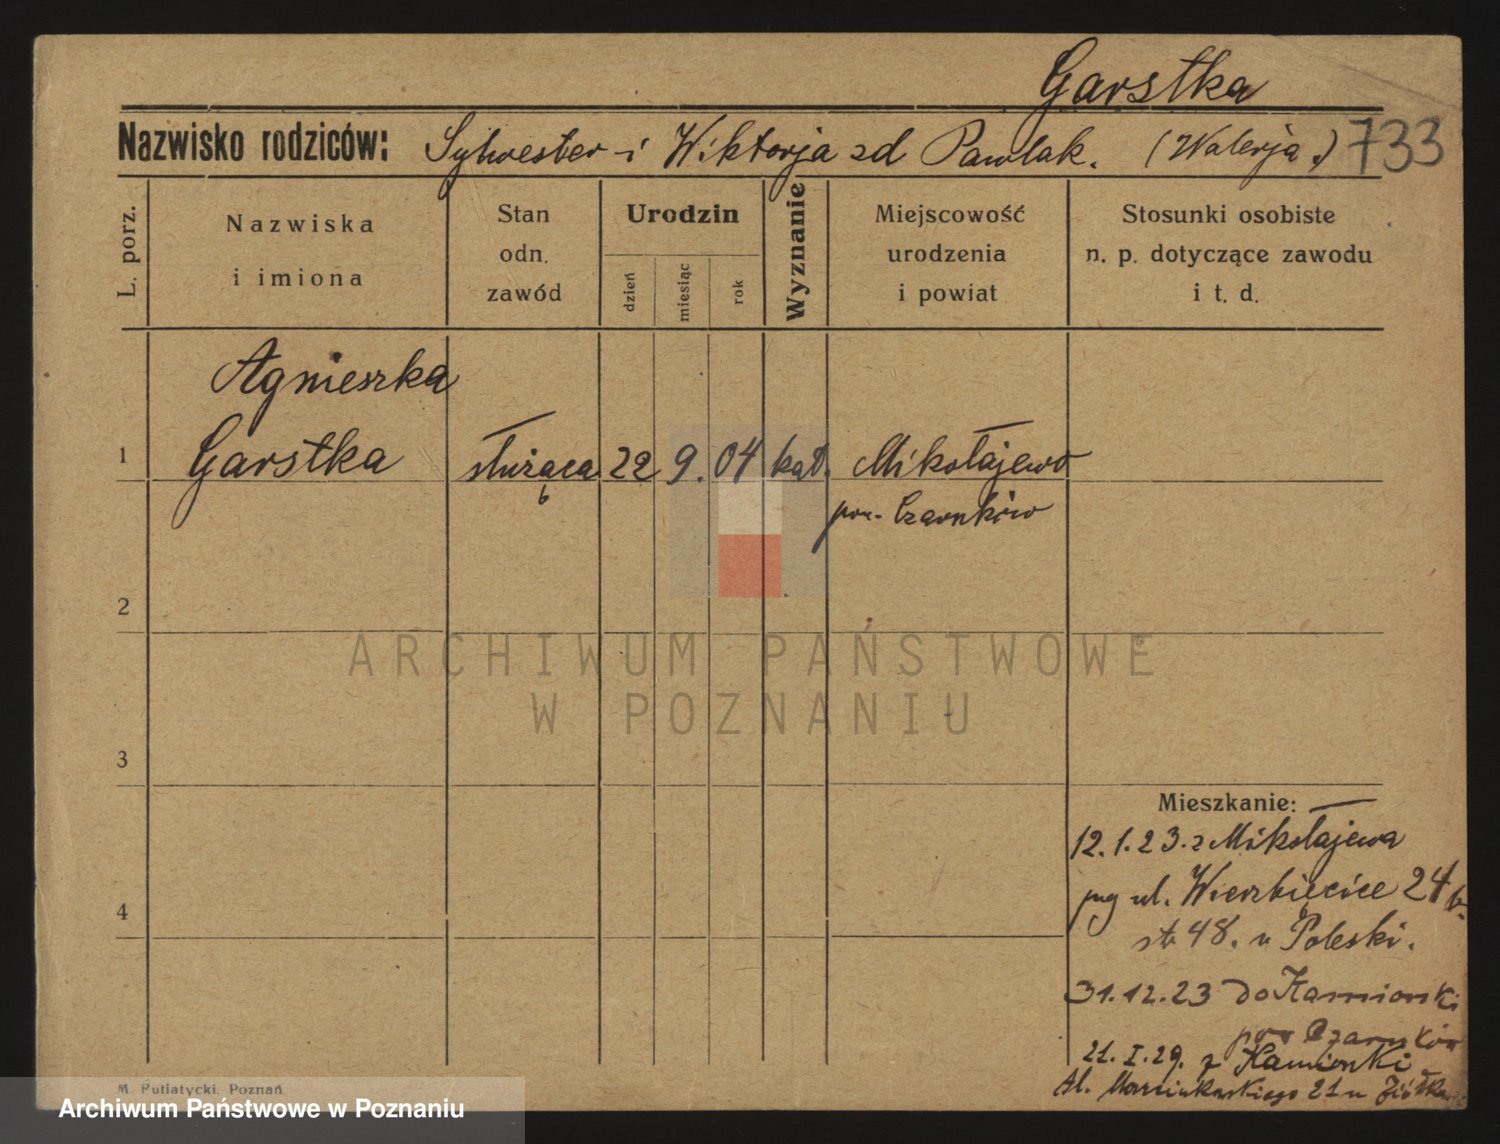 Garstka
Nazwisko rodziców: Sylwester i Wiktorja zd Pawlak. (Walerja.) 733
L. porz.
Nazwiska
i imiona
Stan
odn.
zawód
Urodzin
dzień
miesiąc
rok
Wyznanie
Miejscowość
urodzenia
i powiat
Stosunki osobiste
n. p. dotyczące zawodu
i t. d.
Agnieszka
1 Garstka służąca 22 9. 04 kat. Mikołajewo
pow. Czarnków
2
ARCHIWUM PAŃSTWOWE
W POZNANIU
3
Mieszkanie:
12.1.23. z Mikołajewa
ul. Wierzbięcice 24
48. u Poleski.
31.12.23 do Kamionki
pow Czarnków
21.I.29. z Kamionki
Al. Marcinkowskiego 21 u Ziółka
4
M. Putiatycki, Poznań
Archiwum Państwowe w Poznaniu